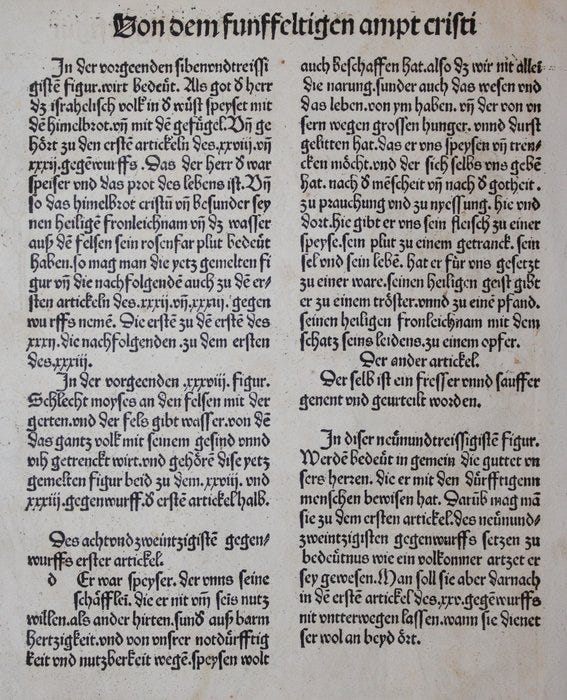 Von dem funffeltigen ampt cristi
In der vorgeenden sibenvndtreissi
gistē figur.wirt bedeüt. Als got ď herr
dz israhelisch volk in ď wüst speyset mit
dē himelbrot.vn̄ mit dē gefügel.Vn̄ ge
hört zu den erstē artickeln des.xxviij.vn̄
xxxij.gegēwurffs .Das der herr ď war
speiser vnd das prot des lebens ist.Vn̄
so das himelbrot cristū vn̄ besunder sey
nen heiligē fronleichnam vn̄ dz wasser
auß dē felsen sein rosenfar plut bedeüt
haben.so mag man die yetz gemelten fi
gur vn̄ die nachfolgendē auch zu dē er⸗
sten artickeln des.xxxij.vn̄.xxxiij.gegen
wurffs nemē. Die erstē zu dē erstē des
xxxij.die nachfolgenden .zu dem ersten
des.xxxiij.
In der vorgeenden .xxxviij. figur.
Schlecht moyses an den felsen mit der
gerten.vnd der fels gibt wasser.von dē
das gantz volk mit seinem gesind vnnd
vih getrenckt wirt.vnd gehörē dise yetz
gemelten figur beid zu dem.xxviij. vnd
xxxiij.gegenwurff.ď erstē artickel halb.
Des achtvndzweintzigistē gegen⸗
wurffs erster artickel.
d Er war speyser. der vnns seine
schäfflei.die er nit vm̄ seīs nutz
willen.als ander hirten.sunď auß barm
hertzigkeit.vnd von vnsrer notdürfftig
keit vnd nutzberkeit wegē.speysen wolt
auch beschaffen hat.also dz wir nit allei
die narung.sunder auch das wesen vnd
das leben.von ym haben. vn̄ der von vn
sern wegen grossen hunger. vnnd durst
gelitten hat.das er vns speysen vn̄ tren⸗
cken möcht.vnd der sich selbs vns gebē
hat. nach ď mēscheit vn̄ nach ď gotheit .
zu prauchung vnd zu nyessung. hie vnd
dort.hie gibt er vns sein fleisch zu einer
speyse.sein plut zu einem getranck. sein
sel vnd sein lebē. hat er für vns gesetzt
zu einer ware.seinen heiligen geist gibt
er zu einem tröster.vnnd zu einē pfand.
seinen heiligen fronleichnam mit dem
schatz seins leidens.zu einem opfer.
Der ander artickel.
Der selb ist ein fresser vnnd sauffer
genent vnd geurteilt worden.
In diser neünundtreissigistē figur.
Werdē bedeüt in gemein die guttet vn
sers herzen. die er mit den dürfftigenn
menschen bewisen hat. Darūb mag mā
sie zu dem ersten artickel.des neünund⸗
zweintzigisten gegenwurffs setzen zu
bedeütnus wie ein volkomner artzet er
sey gewesen.Man soll sie aber darnach
in dē erstē artickel des.xxv.gegēwurffs
nit vnterwegen lassen.wann sie dienet
ser wol an beyd ört.